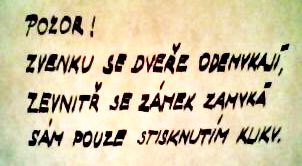 POZOR!
ZVENKU SE DVEŘE ODEMYKAJÍ,
ZEVNITŘ SE ZÁMEK ZAMYKÁ
SÁM POUZE STISKNUTÍM KLIKY.